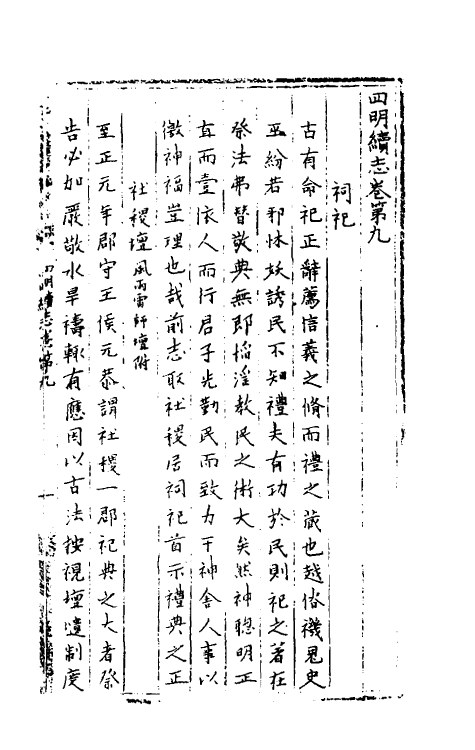 四明續志卷第九
祠祀
古有命祀正辭薦信義之脩而禮之藏也越俗禨鬼史
巫紛若邪怵妖誘民不知禮夫有功於民則祀之著在
祭法弗替敬典無即慆淫教民之術大矣然神聰明正
直而壹依人而行君子先勤民而致力于神舍人事以
徼神福豈理也哉前志取社稷居祠祀首示禮典之正
社稷壇風雨雷師壇附
至正元年郡守王侯元恭謂社稷一郡祀典之大者祭
告必加嚴敬水旱禱輒有應因以古法按視壇壝制度
四明續志卷第九
一